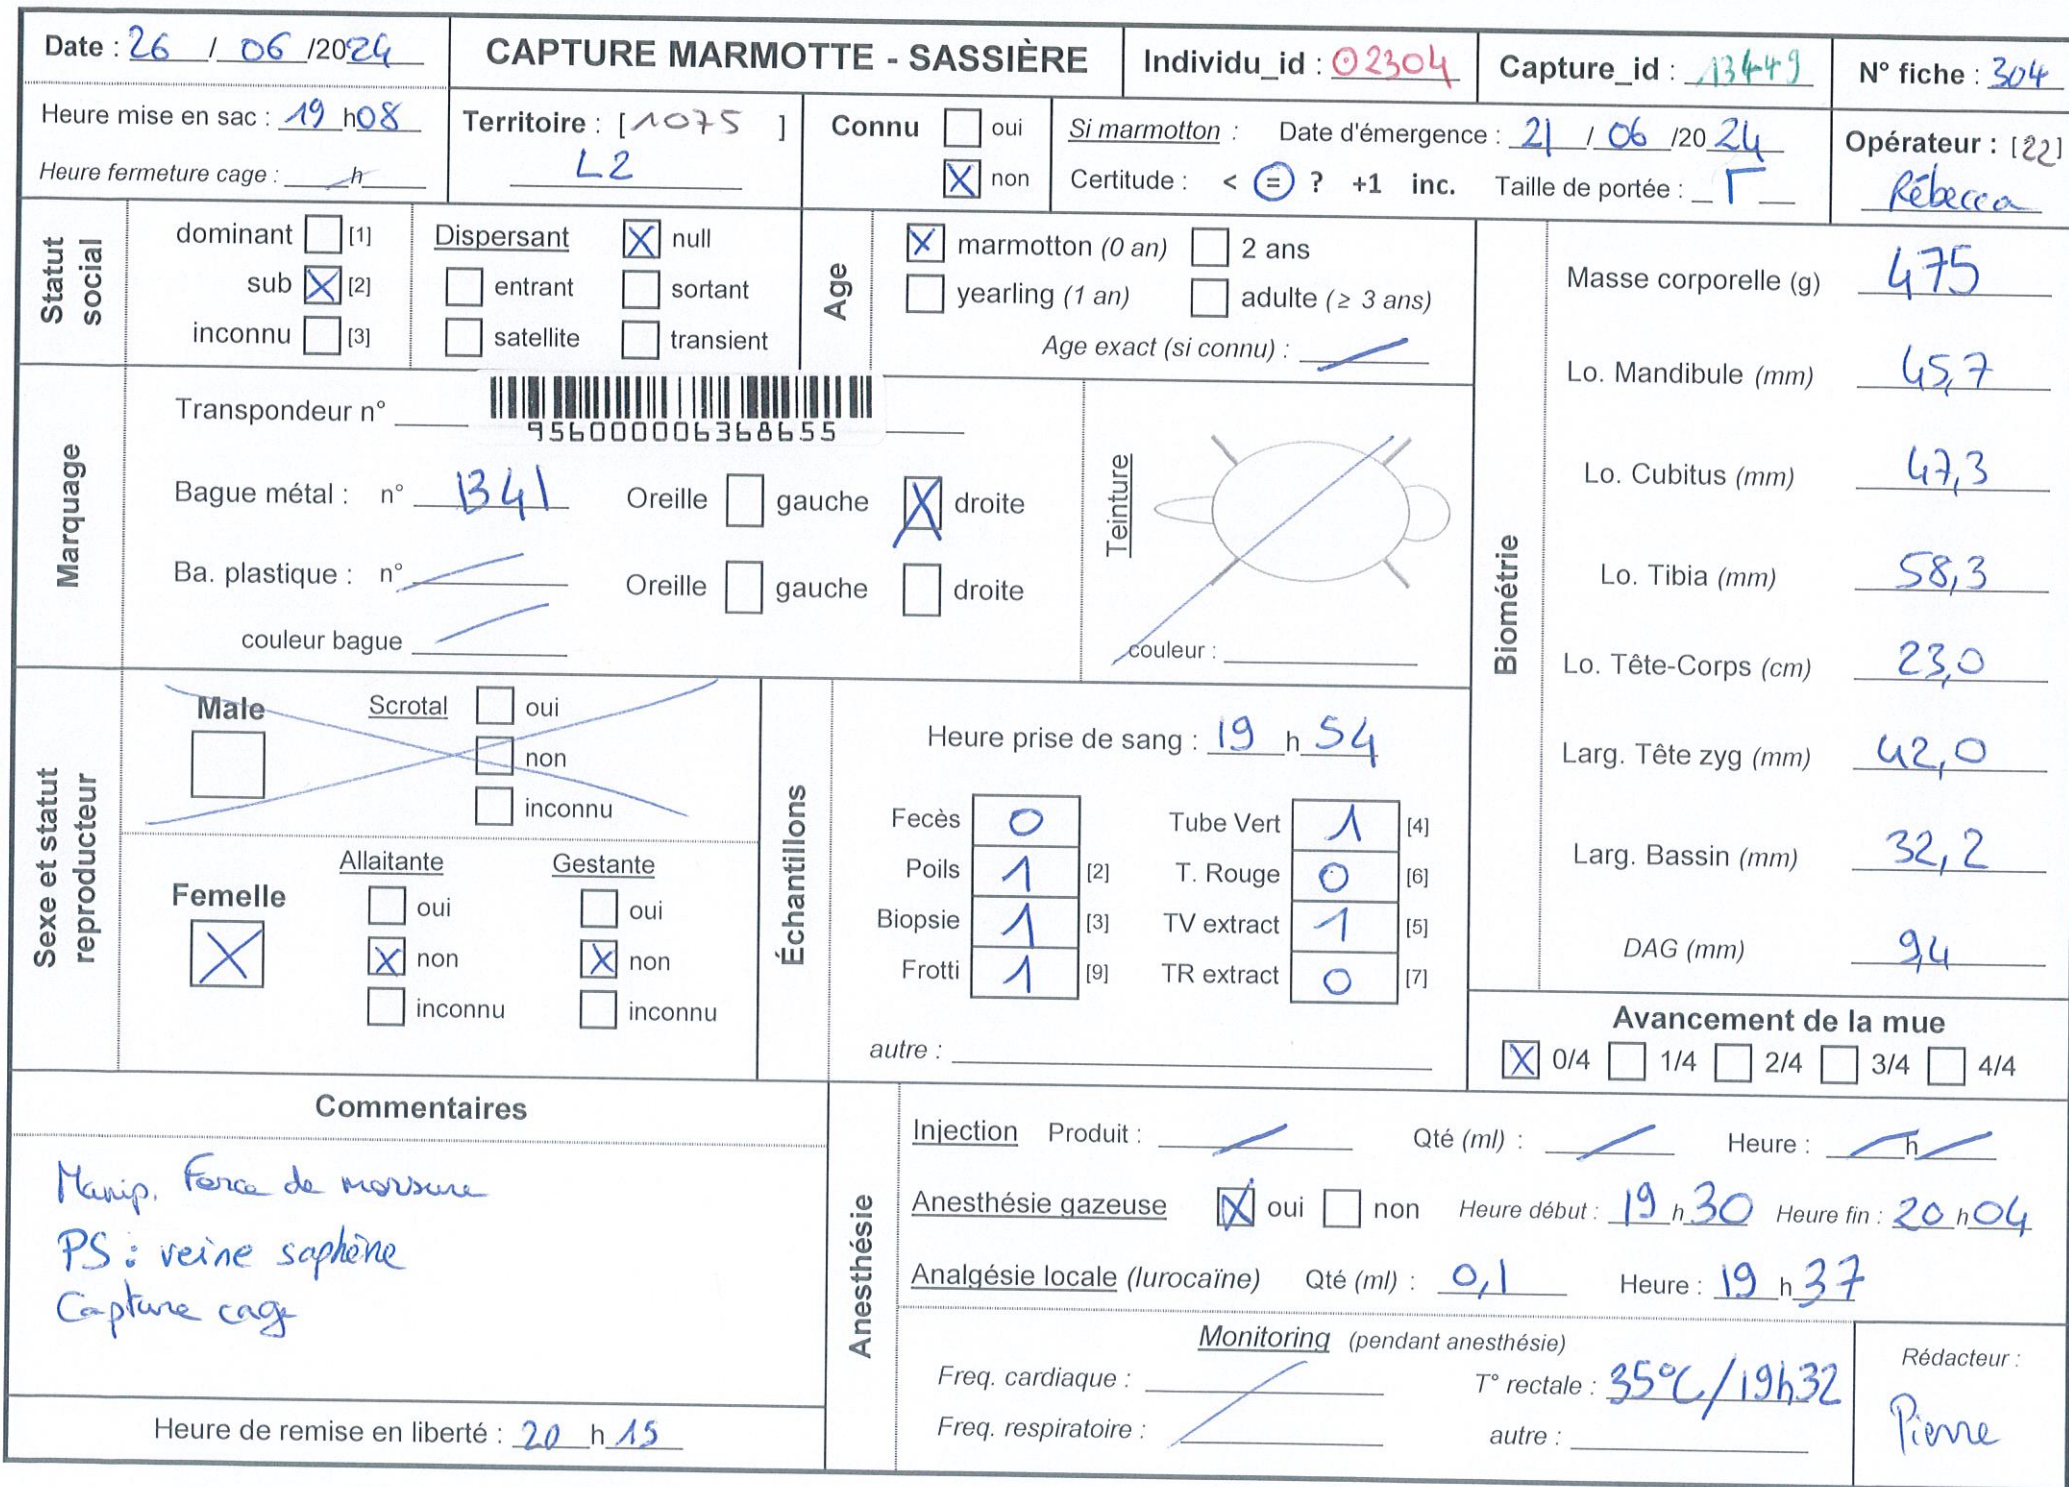 Date : 26 / 06 /2024
CAPTURE MARMOTTE - SASSIÈRE
Individu_id : 02304
Capture_id : 13449
N° fiche : 304
Heure mise en sac : 19 h08
Heure fermeture cage : h
Territoire : [1075 ]
L2
Connu
oui
X non
Si marmotton : Date d'émergence : 21 / 06 /20 24
Certitude : < = ? +1 inc. Taille de portée :
Opérateur : [22]
Rébecca
Statut social
dominant [1]
sub X [2]
inconnu [3]
Dispersant
X null
entrant
sortant
satellite
transient
Age
X marmotton (0 an)
2 ans
yearling (1 an)
adulte (≥ 3 ans)
Age exact (si connu) :
Marquage
Transpondeur n°
956000006368655
Bague métal : n° 1341
Oreille gauche X droite
Ba. plastique : n°
Oreille gauche droite
couleur bague
Teinture
couleur :
Biométrie
Masse corporelle (g) 475
Lo. Mandibule (mm) 45,7
Lo. Cubitus (mm) 47,3
Lo. Tibia (mm) 58,3
Lo. Tête-Corps (cm) 23,0
Larg. Tête zyg (mm) 42,0
Larg. Bassin (mm) 32,2
DAG (mm) 9,4
Avancement de la mue
X 0/4 1/4 2/4 3/4 4/4
Sexe et statut reproducteur
Male
Scrotal
oui
non
inconnu
Femelle
X
Allaitante
oui
X non
inconnu
Gestante
oui
X non
inconnu
Échantillons
Heure prise de sang : 19 h 54
Fecès 0
Tube Vert 1 [4]
Poils 1 [2]
T. Rouge 0 [6]
Biopsie 1 [3]
TV extract 1 [5]
Frotti 1 [9]
TR extract 0 [7]
autre :
Commentaires
Manip. Force de morsure
PS : veine saphène
Capture cage
Heure de remise en liberté : 20 h 15
Anesthésie
Injection Produit : Qté (ml) : Heure : h
Anesthésie gazeuse X oui non Heure début : 19 h 30 Heure fin : 20 h 04
Analgésie locale (lurocaïne) Qté (ml) : 0,1 Heure : 19 h 37
Monitoring (pendant anesthésie)
Freq. cardiaque :
T° rectale : 35°C/19h32
Freq. respiratoire :
autre :
Rédacteur :
Pierre